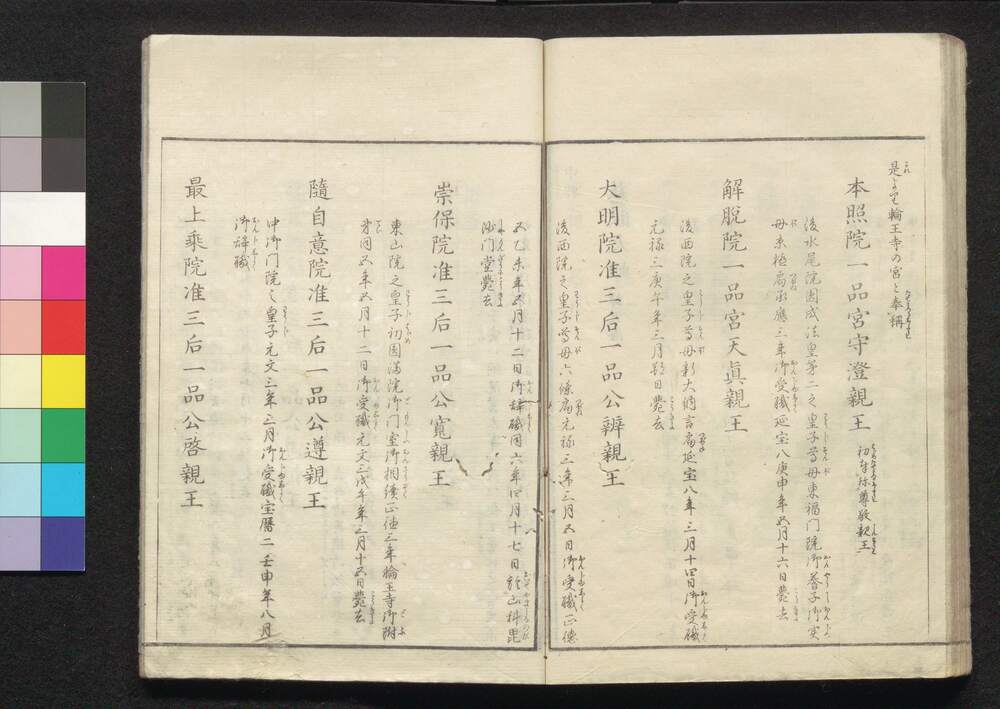 是より輪王寺の宮と奉稱
本照院一品宮守澄親王 初奉称尊敬親王
後水尾院圓成法皇第二之皇子尊母東福門院御養子御実
母京極局承應三年御受職延宝八庚申年五月十六日薨去
解脱院一品宮天眞親王
後西院之皇子尊母新大納言局延宝八年三月十四日御受職
元禄三庚午年三月朔日薨去
大明院准三后一品公辨親王
後西院之皇子尊母六條局元禄三年三月五日御受職正徳
五乙未年五月十二日御辞職同六年四月十七日於山科毘
沙门堂薨去
崇保院准三后一品公寛親王
東山院之皇子初圓満院御门室御相續正徳三年輪王寺御附
弟同五年五月十二日御受職元文三戌午年三月十五日薨去
隨自意院准三后一品公遵親王
中御门院之皇子元文三年三月御受職宝暦二壬申年八月
御辞職
最上乘院准三后一品公啓親王